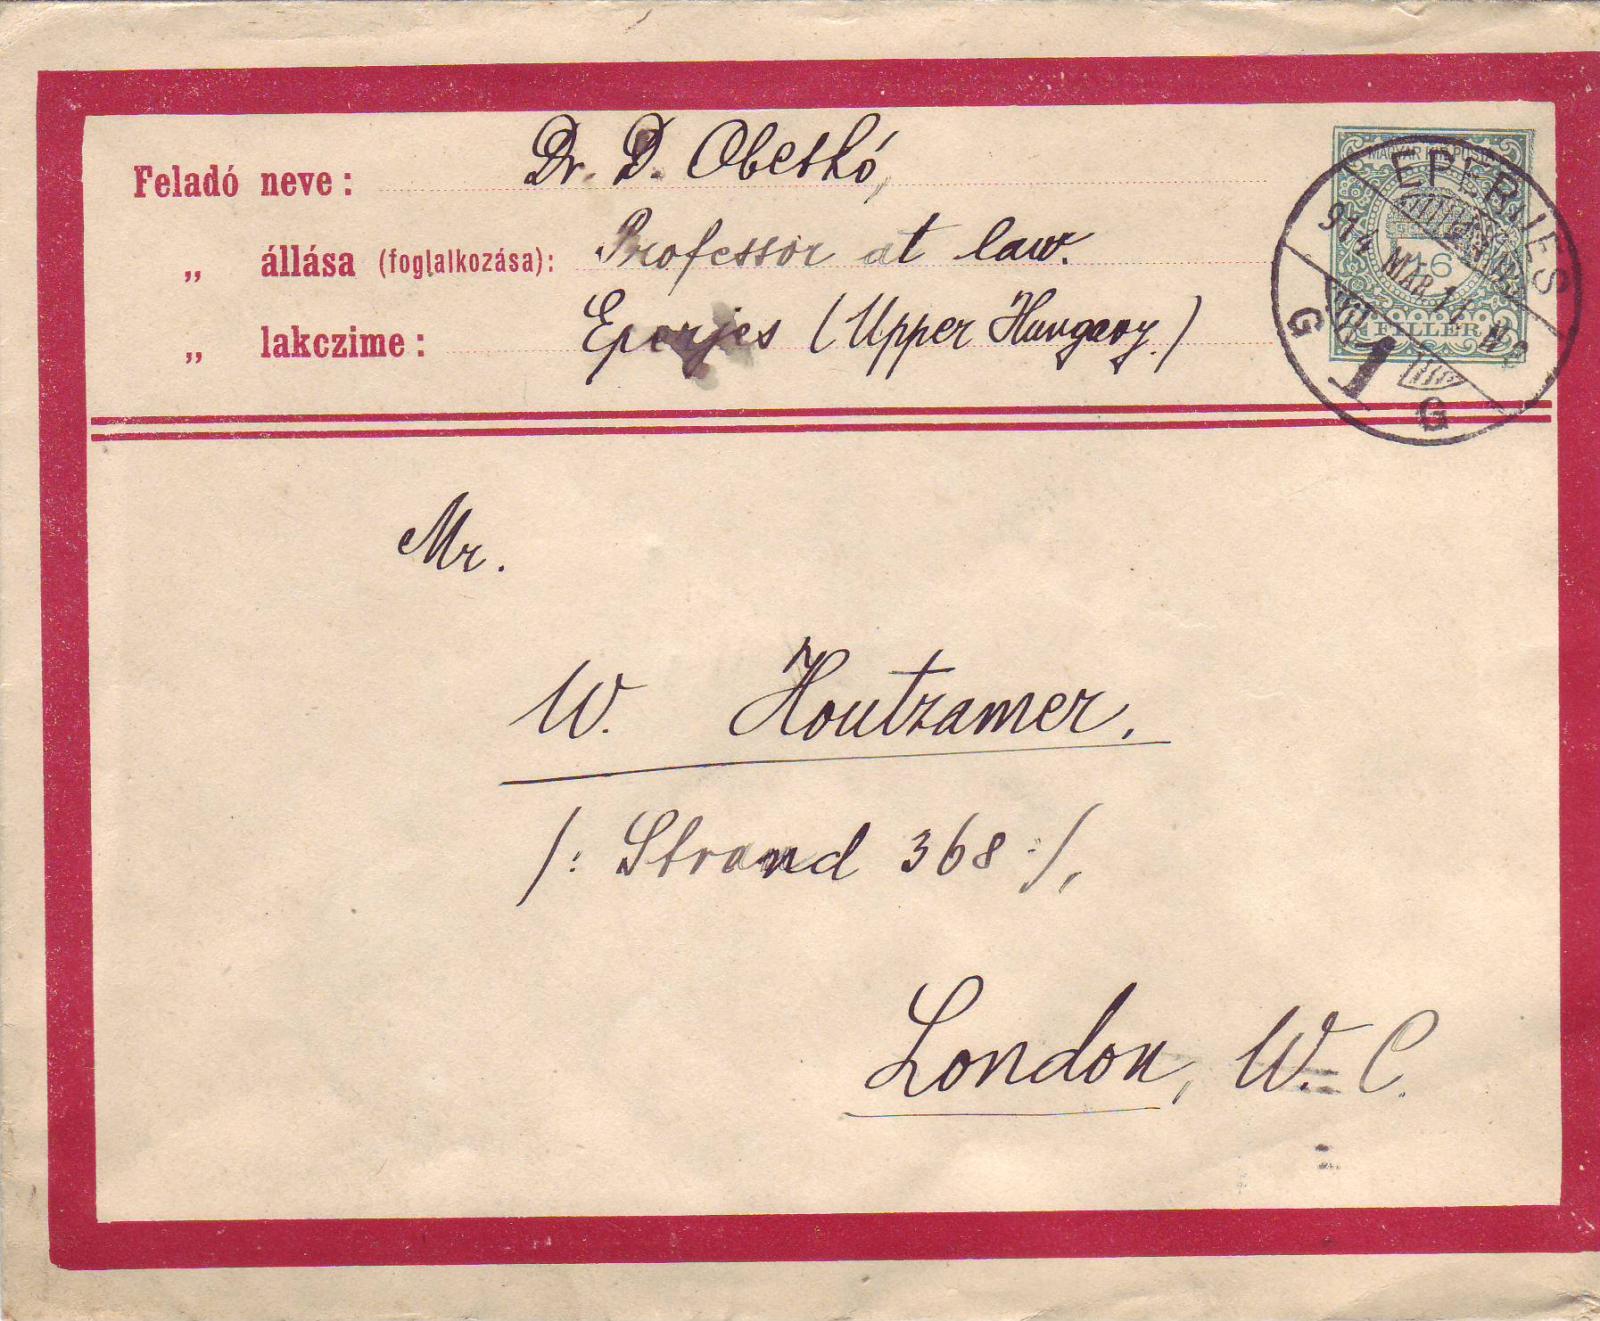 Feladó neve: Dr. D. Obetkó,
„ állása (foglalkozása): Professor at law.
„ lakczime: Eperjes (Upper Hungary.)
MAGYAR KIR. POSTA
16
FILLÉR
EPERJES
914 MÁR 11
G 1 G
Mr.
W. Houtzamer.
/: Strand 368 :/,
London, W. C.